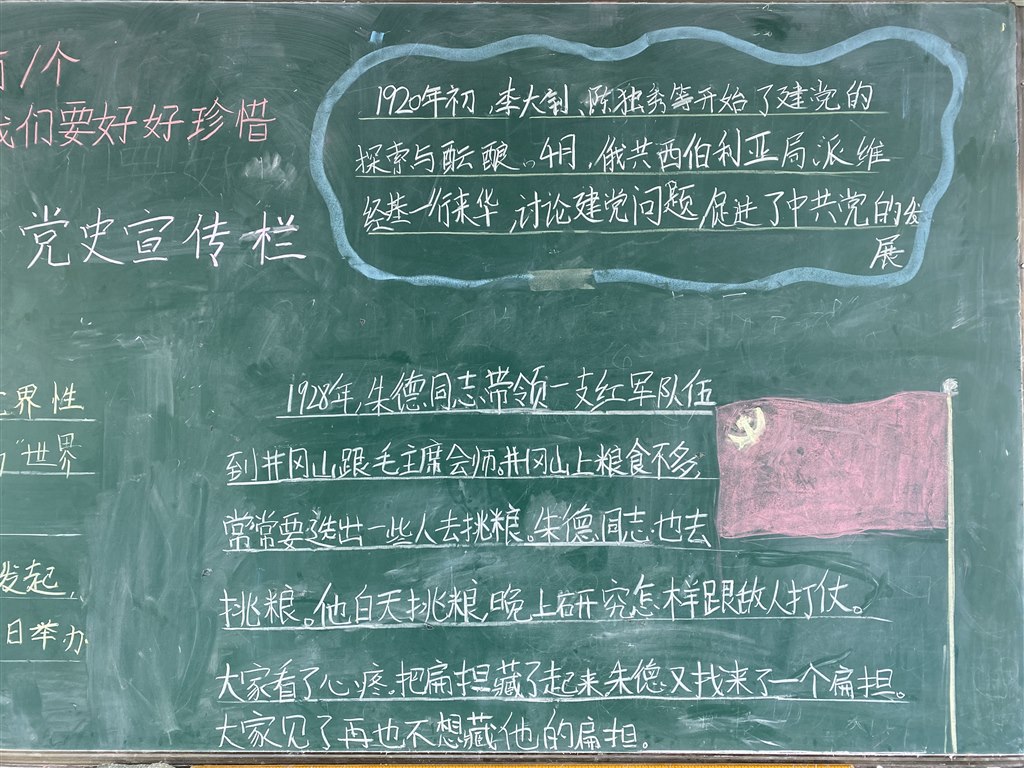 有/个
我们要好好珍惜
党史宣传栏
1920年初,李大钊、陈独秀等开始了建党的
探索与酝酿。4月,俄共西伯利亚局派维
经基一行来华,讨论建党问题,促进了中共党的发
展
1928年,朱德同志带领一支红军队伍
到井冈山跟毛主席会师。井冈山上粮食不多,
常常要选出一些人去挑粮。朱德同志也去
挑粮。他白天挑粮,晚上研究怎样跟敌人打仗。
大家看了心疼。把扁担藏了起来,朱德又找来了一个扁担。
大家见了再也不想藏他的扁担。
界性
"世界
发起,
日举办